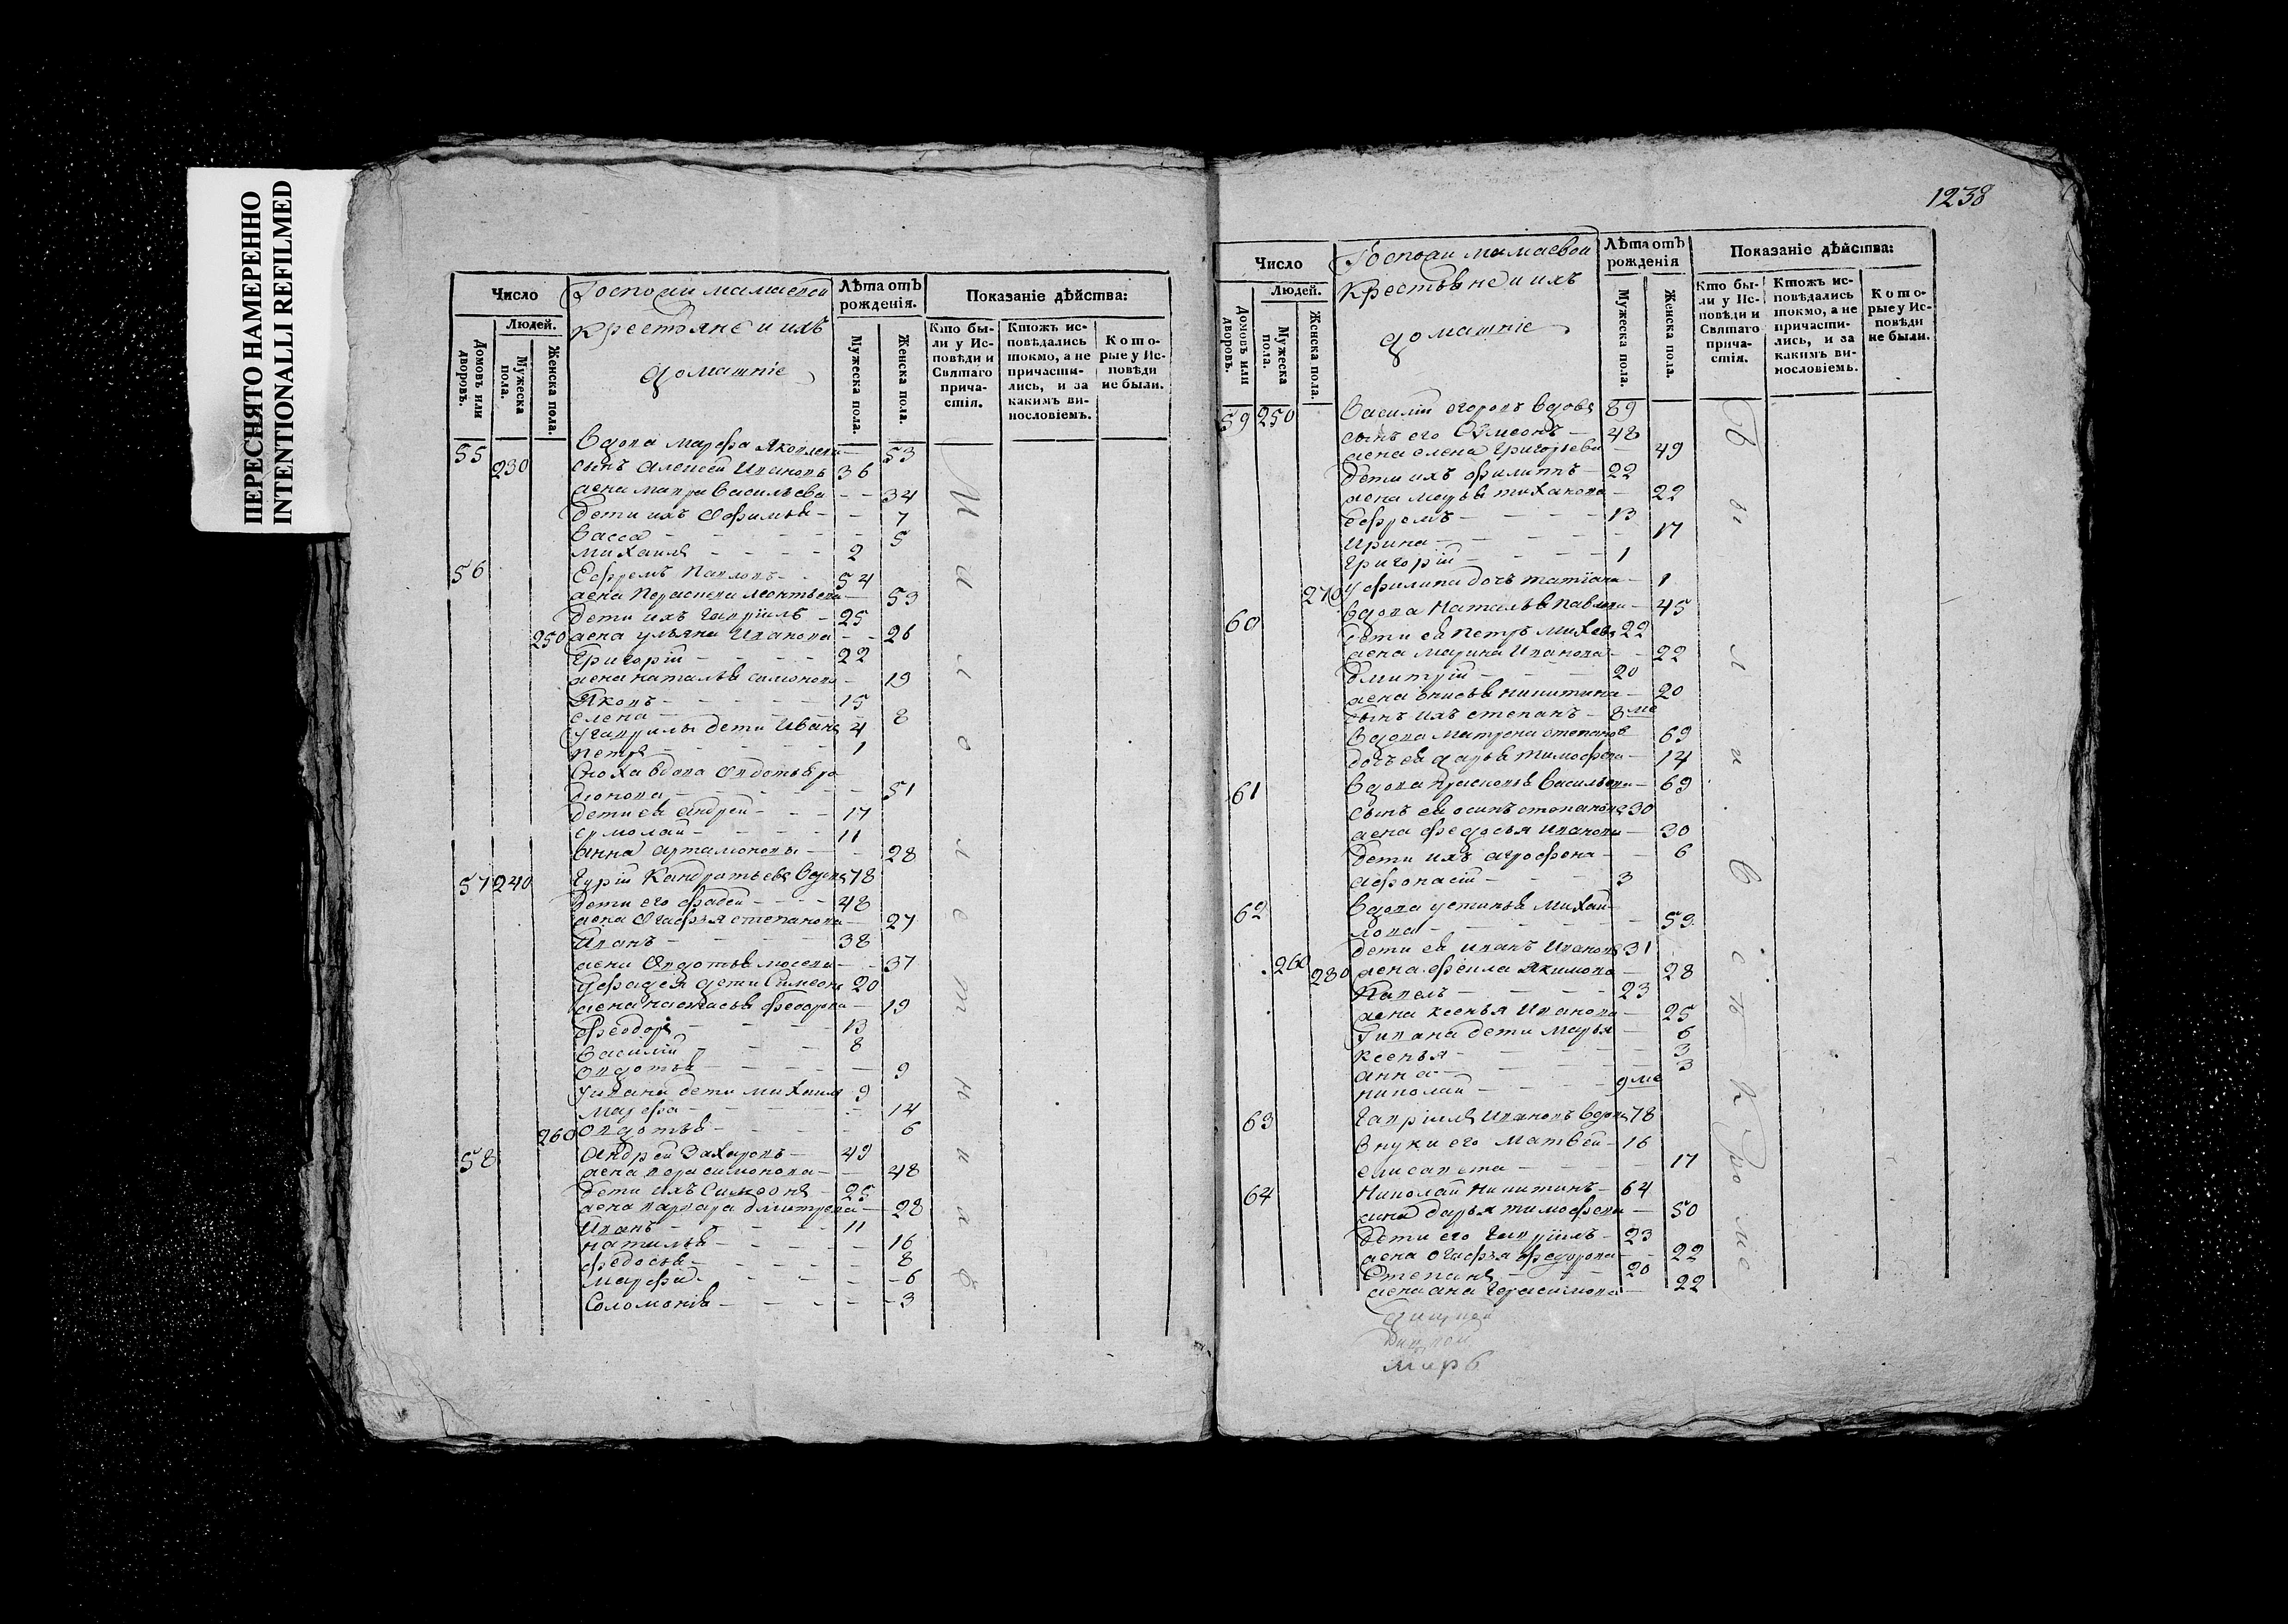 ПЕРЕСНЯТО НАМЕРЕННО
INTENTIONALLI REFILMED
Число
Людей.
Домовъ или дворовъ.
Мужеска пола.
Женска пола.
Крестьяне и ихъ
домашніе
Лѣта отъ рожденія.
Мужеска пола.
Женска пола.
Показаніе дѣйства:
Кто были у Исповѣди и Святаго причастія.
Ктожъ исповѣдались токмо, а не причастились, и за какимъ винословіемъ.
Которые у Исповѣди не были.
55 вдова марфа Яковлева 53
230 сынъ алексей Ивановъ 36
жена мавра Васильева 34
дети ихъ Офимья 7
Васса 5
михаилъ 2
56 Ефремъ Павловъ 54
жена Параскева леонтьева 53
дети ихъ Гавріилъ 25
250 жена ульяна Иванова 26
Григорій 22
жена наталья симонова 19
Яковъ 15
елена 8
у гаврилы дети Иванъ 4
петръ 1
сноха вдова Овдотья
51
дети ея андрей 17
ермолай 11
анна артамонова 28
57 240 гурій Кандратьевъ вдовъ 78
дети его фадей 48
жена Огафья степанова 27
Иванъ 38
жена Овдотья 37
у фадея дети Симеонъ 20
жена настасья федорова 19
феодоръ 13
Василій 8
овдотья 9
у ивана дети михаила 9
марфа 14
260 овдотья 6
58 Андрей Захаровъ 49
жена 48
дети ихъ Симеонъ 25
жена варвара дмитрева 28
Иванъ 11
наталья 16
федосья 8
марфа 6
Соломонія 3
1238
Число
Людей.
Домовъ или дворовъ.
Мужеска пола.
Женска пола.
Госпожи мамаевой
крестьяне и ихъ
домашніе
Лѣта отъ рожденія
Мужеска пола.
Женска пола.
Показаніе дѣйства:
Кто были у Исповѣди и Святаго причастія.
Ктожъ исповѣдались токмо, а не причастились, и за какимъ винословіемъ.
Которые у Исповѣди не были.
59 250 Василій егоровъ вдовъ 89
сынъ его Симеонъ 48
жена елена Григорьева 49
дети ихъ филиппъ 22
жена марья тиханова 22
ефремъ 13
Ирина 17
Григорій 1
270 у филипа дочь татіана 1
60 вдова Наталья павлова 45
дети ея петръ 22
жена марина Иванова 22
дмитрій 20
жена анисья никитина 20
сынъ ихъ степанъ 8 ме
вдова матрена степанов 69
дочь ея дарья тимофева 14
61 вдова прасковья Васильева 69
сынъ ея осипъ степановъ 30
жена федосья иванова 30
дети ихъ агрофена 6
афонасій 3
62 вдова устинья михай
лова 59
дети ея иванъ Ивановъ 31
260 280 жена фекла Якимова 28
Павелъ 23
жена ксенья Иванова 25
у ивана дети марья 6
ксенья 3
анна 3
николай 9 ме
63 гавріилъ Ивановъ вдовъ 78
внуки его матвей 16
елисавета 17
64 Николай никитинъ 64
жена дарья тимофева 50
дети его гавріилъ 23
жена огафья федорова 22
Степанъ 20
жена ана герасимова 22